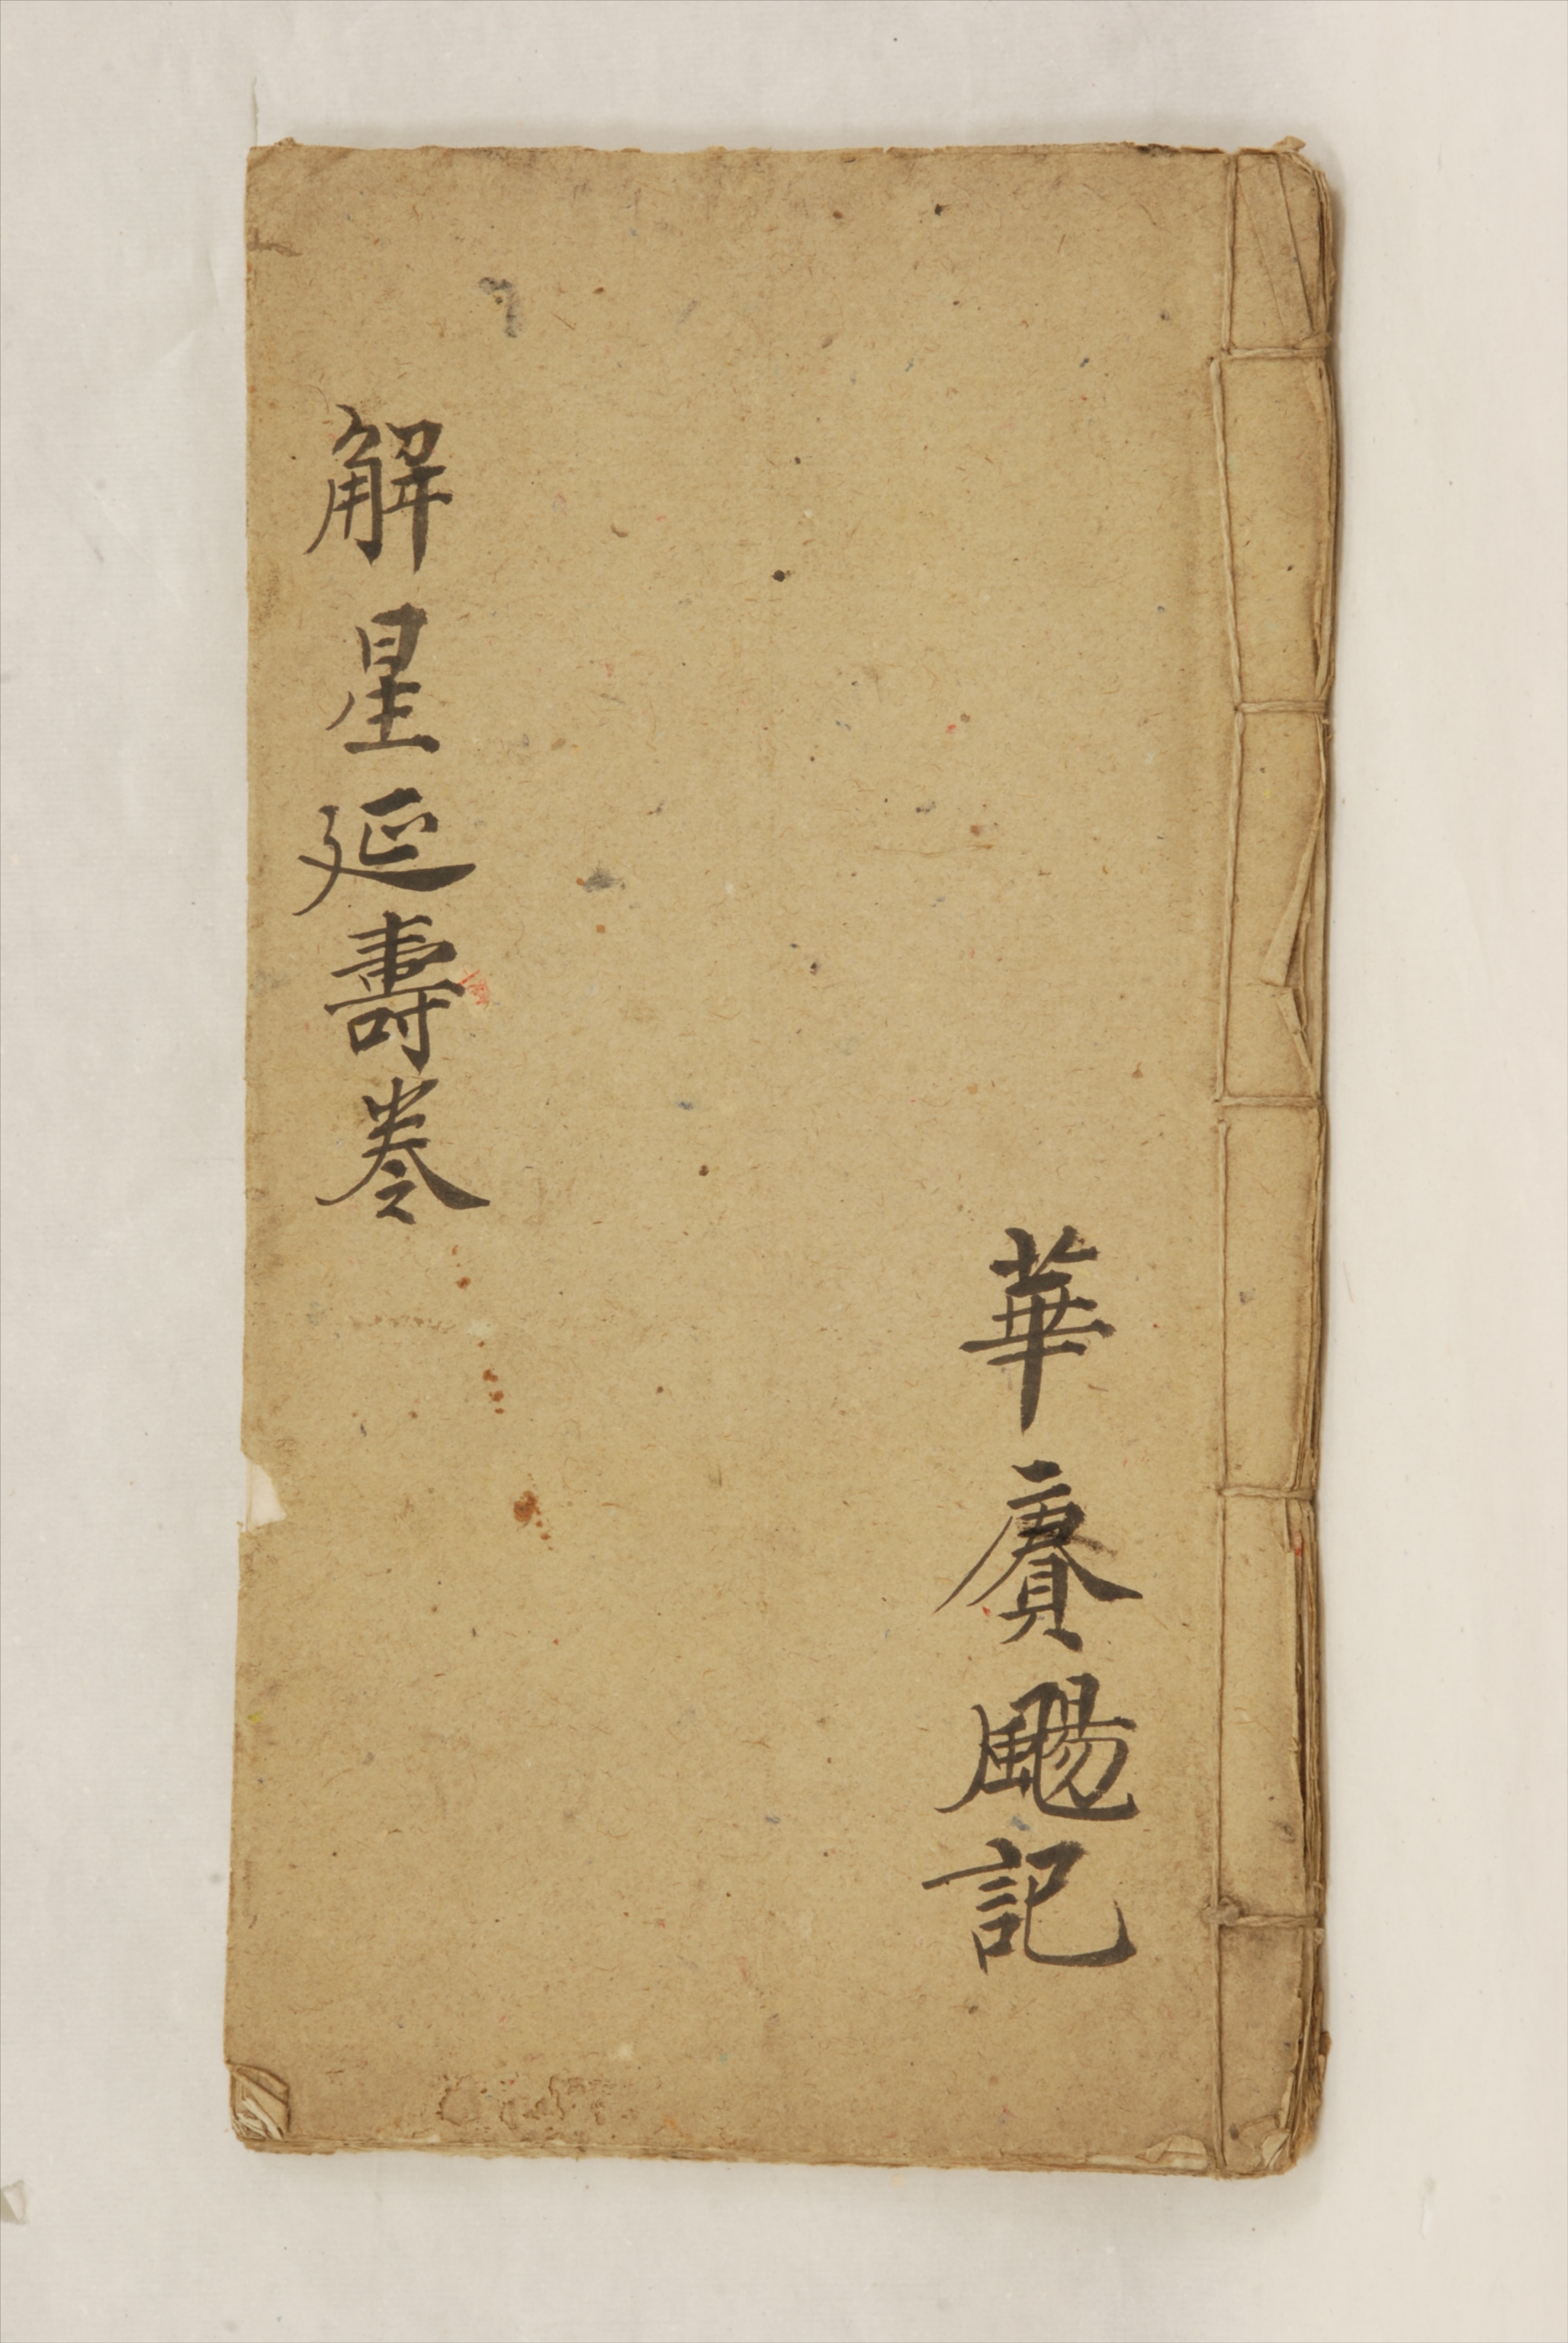 華賡颺記
解星延壽卷